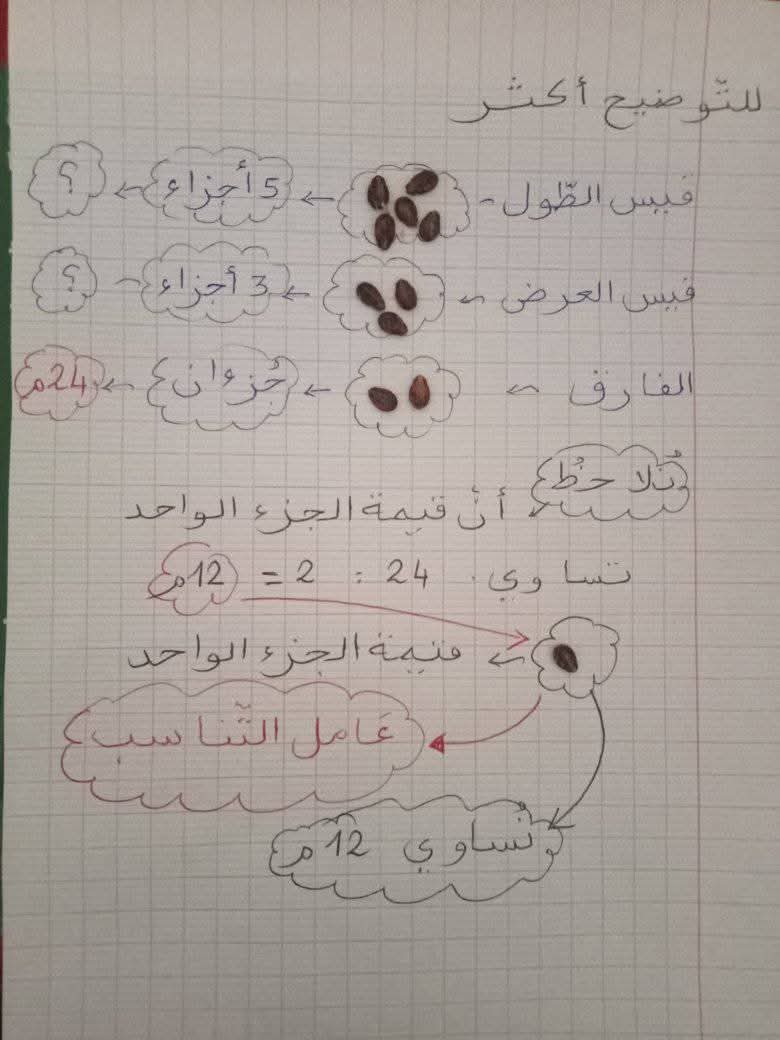 للتّوضيح أكثر
قيس الطّول ← 5 أجزاء ← ؟
قيس العرض ← 3 أجزاء ← ؟
الفارق ← جُزءان ← 24م
نُلاحظُ أنّ قيمة الجزء الواحد
تساوي. 24 : 2 = 12م
← قيمة الجزء الواحد
عَامل التّناسب
تُساوي 12 م